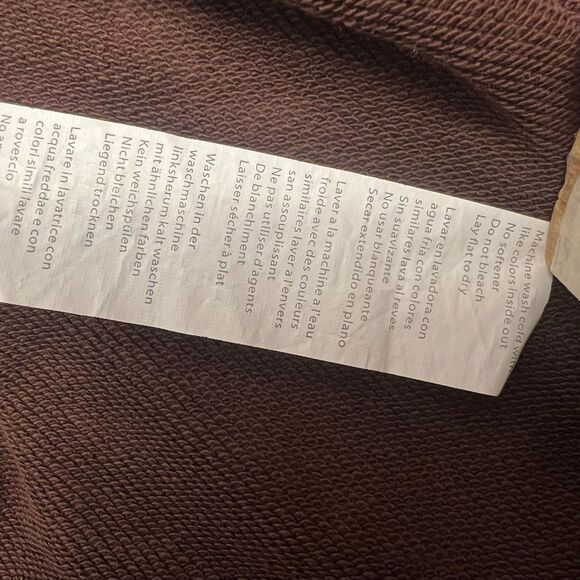 Machine wash cold with
like colors inside out
No. softener
Do not bleach
Lay flat to dry
Lavar en lavadora con
agua fria con colores
similares lava al reves
Sin suavizante
No usar blanqueante
Secar extendido en plano
Laver a la machine a l'eau
froide avec des couleurs
similaires laver a l'envers
san assouplissant
Ne pas utiliser d'agents
De blanchiment
Laisser sécher à plat
Waschen in der
waschmaschine
linksherum kalt waschen
mit ähnlichen farben
Kein weichspülen
Nicht bleichen
Liegend trocknen
Lavare in lavatrice con
acqua freddae e con
colori simili lavare
a rovescio
No